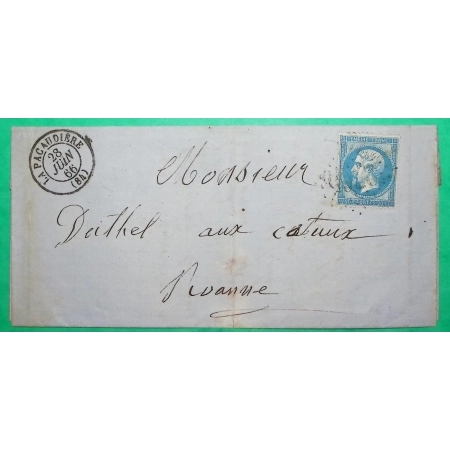 LA PACAUDIÈRE
28
JUIN
66
(84)
Monsieur
Duthel aux coteaux
Roanne